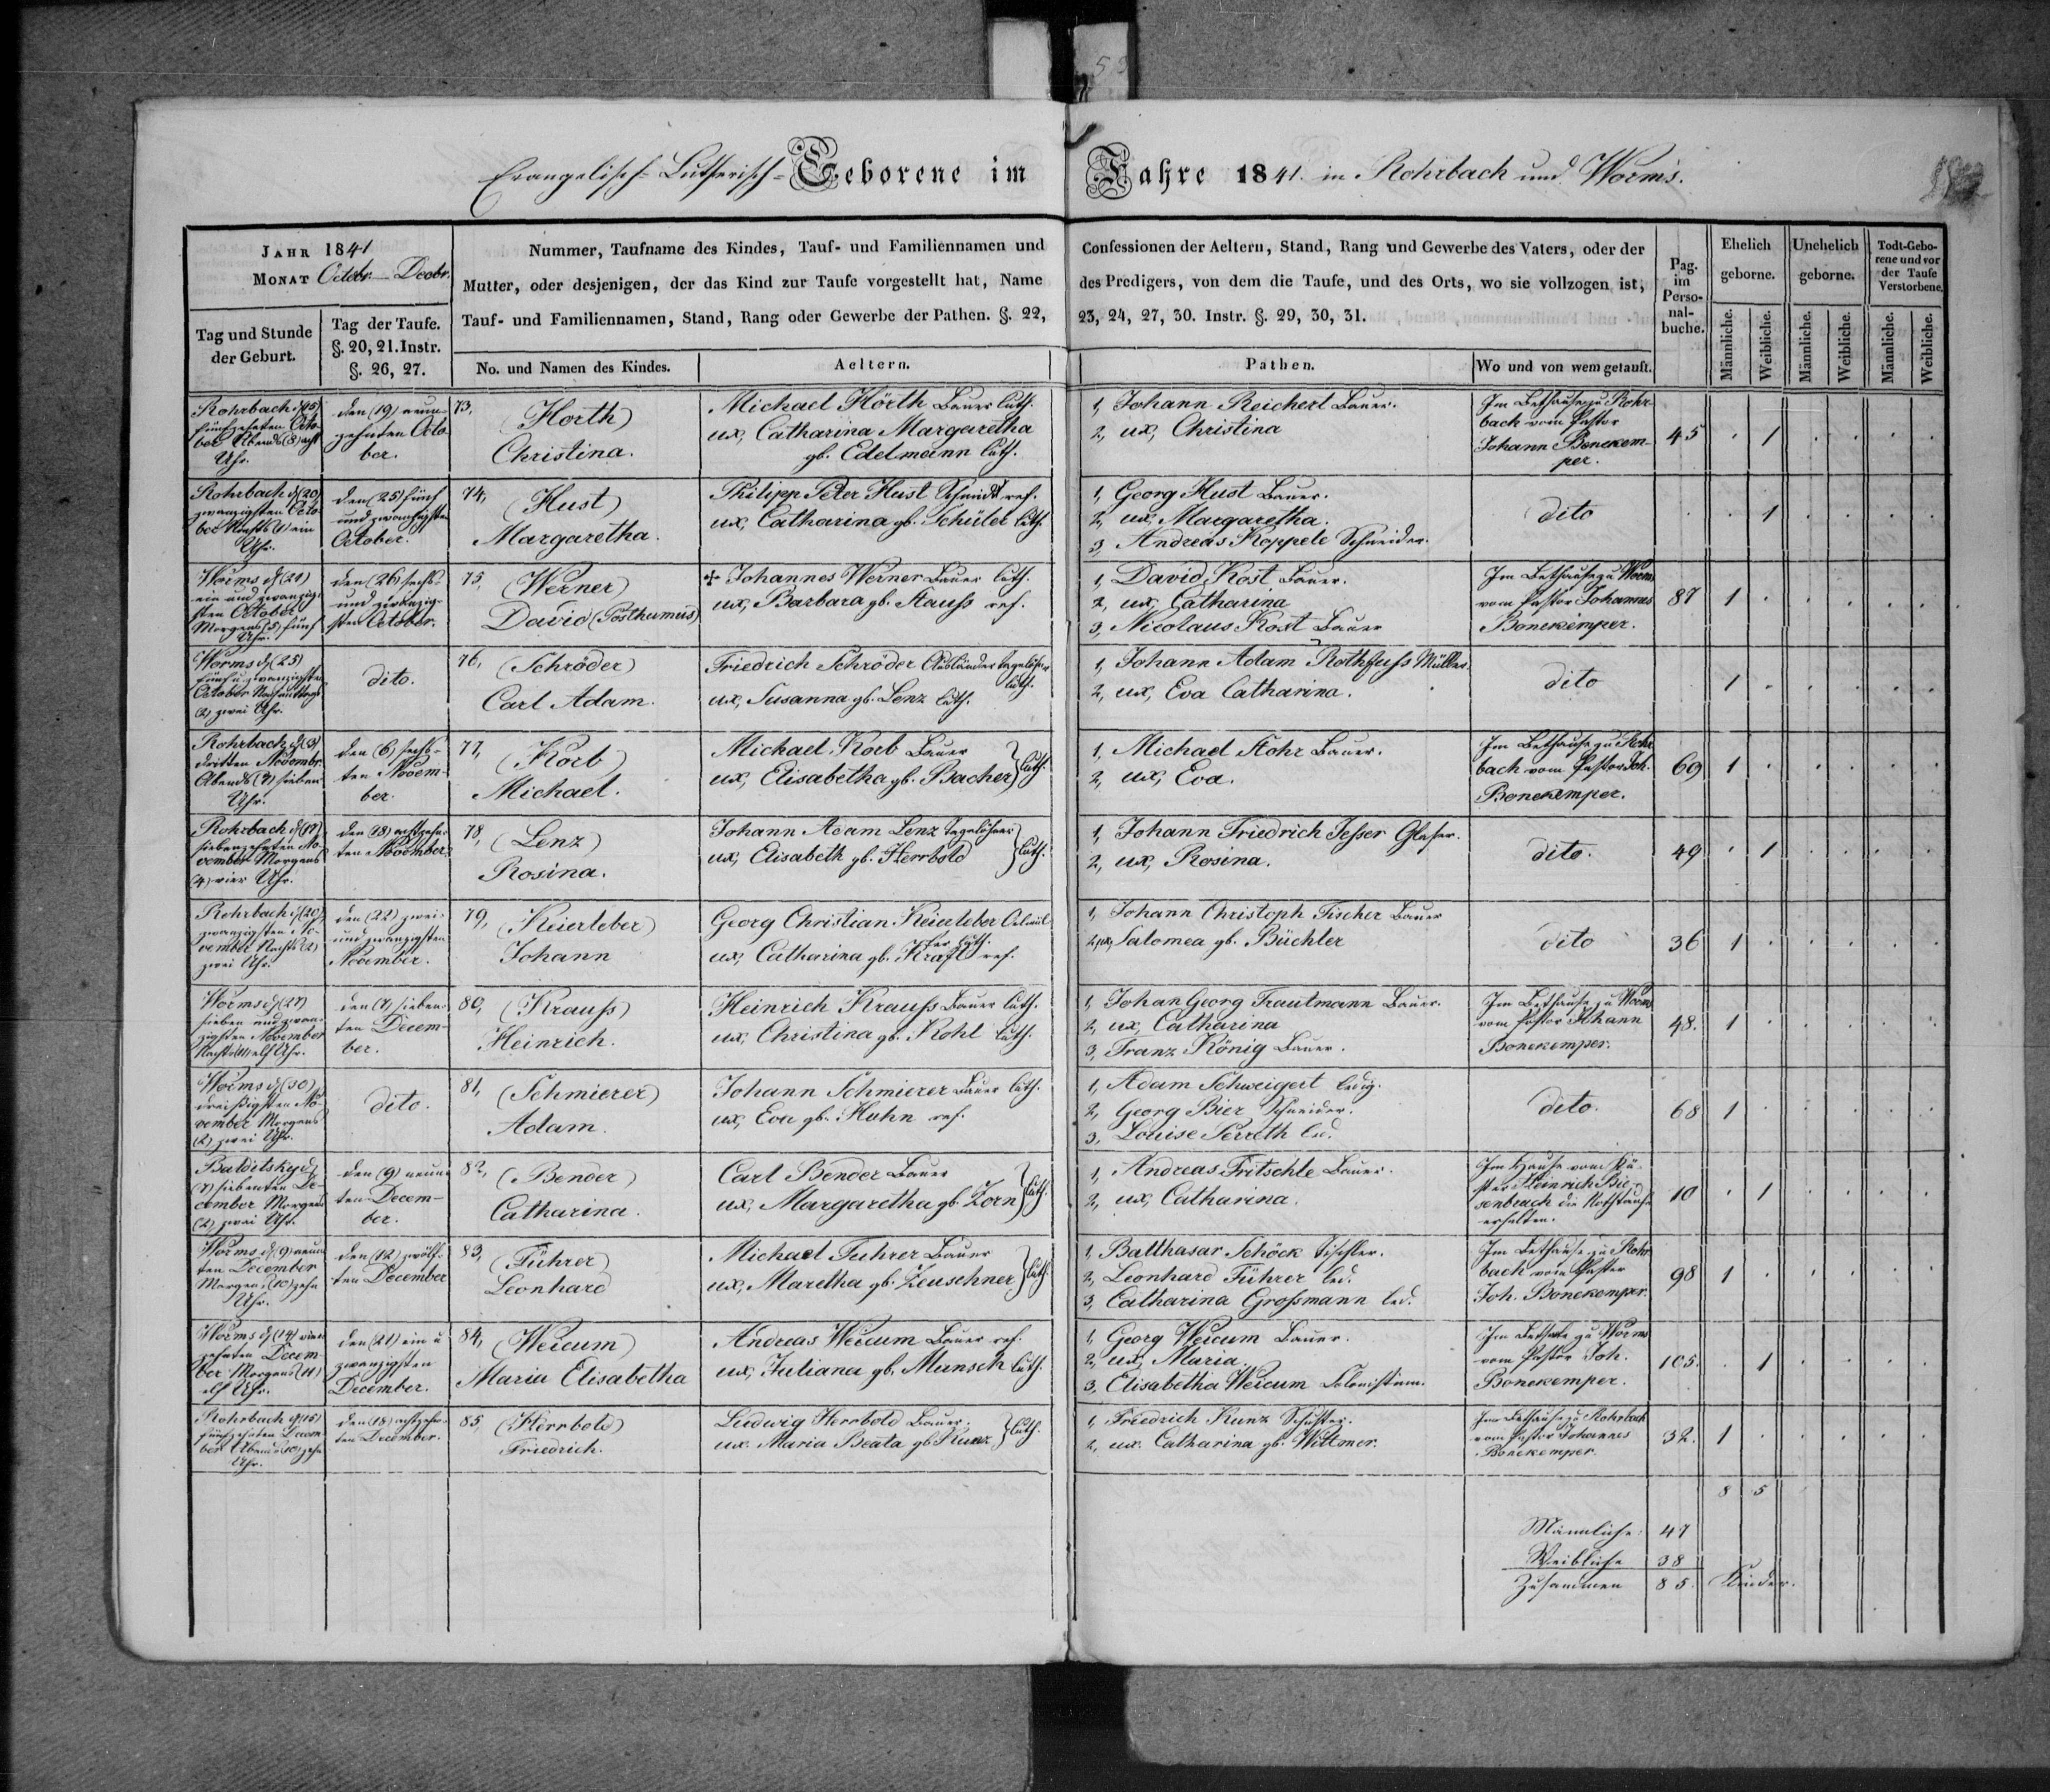 53
Evangelisch-Lutherisch- Geborene im Jahre 1841. in Rohrbach und Worms.
JAHR 1841
MONAT Octobr.–Decbr.
Tag und Stunde
der Geburt.
Tag der Taufe.
§. 20, 21. Instr.
§. 26, 27.
Nummer, Taufname des Kindes, Tauf- und Familiennamen und
Mutter, oder desjenigen, der das Kind zur Taufe vorgestellt hat, Name
Tauf- und Familiennamen, Stand, Rang oder Gewerbe der Pathen. §. 22,
No. und Namen des Kindes.
Aeltern.
Confessionen der Aeltern, Stand, Rang und Gewerbe des Vaters, oder der
des Predigers, von dem die Taufe, und des Orts, wo sie vollzogen ist,
23, 24, 27, 30. Instr. §. 29, 30, 31.
Pathen.
Wo und von wem getauft.
Pag.
im
Perso-
nal-
buche.
Ehelich
geborne.
Unehelich
geborne.
Todt-Gebo-
rene und vor
der Taufe
Verstorbene.
Männliche.
Weibliche.
Männliche.
Weibliche.
Männliche.
Weibliche.
Rohrbach d. (15)
fünfzehnten Octo-
ber Abends (8) acht
Uhr.
den (19) neun-
zehnten Octo-
ber.
73, (Horth)
Christina.
Michael Hörth Bauer luth.
ux, Catharina Margaretha
gb. Edelmann luth.
1, Johann Reichert Bauer.
2, ux, Christina
Im Bethause zu Rohr-
bach vom Pastor
Johann Bonekem-
per.
45 . 1 . . . .
Rohrbach d. (20)
zwanzigsten Octo-
ber Nachts (1) ein
Uhr.
den (25) fünf
und zwanzigsten
October.
74, (Hust)
Margaretha.
Philipp Peter Hust Schmidt ref.
ux, Catharina gb. Schüler luth.
1, Georg Hust Bauer.
2, ux, Margaretha.
3, Andreas Koppele Schneider.
dito
. 1 . . . .
Worms d. (21)
ein und zwanzig-
sten October
Morgens (5) fünf
Uhr.
den (26) sechs-
und zwanzig-
sten October.
75, (Werner)
David (Posthumus)
+ Johannes Werner Bauer luth.
ux, Barbara gb. Stauss ref.
1, David Kost Bauer.
2, ux, Catharina
3, Nicolaus Kost Bauer
Im Bethause zu Worms
vom Pastor Johannes
Bonekemper.
87 1 . . . . .
Worms d. (25)
fünf u. zwanzigsten
October Nachmittags
(2) zwei Uhr.
dito.
76, (Schröder)
Carl Adam.
Friedrich Schröder Ausländer Tagelöhner
luth.
ux, Susanna gb. Lenz luth.
1, Johann Adam Rothfuss Müller.
2, ux, Eva Catharina.
dito
1 . . . . .
Rohrbach d. (3)
dritten Novembr.
Abends (7) sieben
Uhr.
den (6) sechs-
ten Novem-
ber.
77, (Korb)
Michael.
Michael Korb Bauer
ux, Elisabetha gb. Bacher} luth.
1, Michael Stohr Bauer.
2, ux, Eva.
Im Bethause zu Rohr
bach vom Pastor Joh.
Bonekemper.
69 1 . . . . .
Rohrbach d. (17)
siebenzehnten No-
vember Morgens
(4) vier Uhr.
den (18) achtzehn-
ten November.
78, (Lenz)
Rosina.
Johann Adam Lenz Tagelöhner
ux, Elisabeth gb. Herrbold } luth.
1, Johann Friedrich Jesser Glaser.
2, ux, Rosina.
dito.
49 . 1 . . . .
Rohrbach d. (20)
zwanzigsten No-
vember Nachts (2)
zwei Uhr.
den (22) zwei-
und zwanzigsten
November.
79, (Keierleber)
Johann
Georg Christian Keierleber Oelmül-
ler luth.
ux, Catharina gb. Kraft ref.
1, Johann Christoph Fischer Bauer
2, ux, Salomea gb. Büchler
dito
36 1 . . . . .
Worms d. (27)
sieben und zwan-
zigsten November
Nachts (11) elf Uhr.
den (7) sieben-
ten Decem-
ber.
80, (Krauss)
Heinrich.
Heinrich Krauss Bauer luth.
ux, Christina gb. Kohl luth.
1, Johan Georg Trautmann Bauer.
2, ux, Catharina
3, Franz König Bauer.
Im Bethause zu Worms
vom Pastor Johann
Bonekemper.
48. 1 . . . . .
Worms d. (30)
dreissigsten No-
vember Morgens
(2) zwei Uhr.
dito.
81, (Schmierer)
Adam.
Johann Schmierer Bauer luth.
ux, Eva gb. Hohn ref.
1, Adam Schweigert ledig.
2, Georg Bier Schneider.
3, Louise Serreth led.
dito.
68 1 . . . . .
Balditsky d.
(7) siebenten De-
cember Morgens
(2) zwei Uhr.
den (9) neun-
ten Decem-
ber.
82, (Bender)
Catharina.
Carl Bender Bauer
ux, Margaretha gb. Zorn } luth.
1, Andreas Fritschle Bauer.
2, ux, Catharina.
Im Hause vom Kü-
ster Heinrich Bie-
senbrach die Nothtaufe
erhalten.
10 . 1 . . . .
Worms d. (9) neun-
ten December
Morgens (10) zehn
Uhr.
den (12) zwölf-
ten December
83, (Führer)
Leonhard
Michael Fuhrer Bauer
ux, Maretha gb. Zeuschner } luth.
1, Balthasar Schöck Tischler.
2, Leonhard Führer led.
3, Catharina Grossmann led.
Im Bethause zu Rohr
bach vom Pastor
Joh. Bonekemper.
98 1 . . . . .
Worms d. (14) vier-
zehnten Decem-
ber Morgens (11)
elf Uhr.
den (21) ein u
zwanzigsten
December.
84, (Weicum)
Maria Elisabetha
Andreas Weicum Bauer ref.
ux, Juliana gb. Munsch luth.
1, Georg Weicum Bauer.
2, ux, Maria.
3, Elisabetha Weicum Colonistinn.
Im Bethause zu Worms
vom Pastor Joh.
Bonekemper.
105. . 1 . . . .
Rohrbach d. (15)
fünfzehnten Decem-
ber Abends (10) zehn
Uhr.
den (18) achtzehn-
ten December.
85, (Herrbold)
Friedrich.
Ludwig Herrbold Bauer.
ux. Maria Beata gb Kunz } luth.
1, Friedrich Kunz Schuster.
2, ux. Catharina gb. Wittmer.
Im Bethause zu Rohrbach
vom Pastor Johannes
Bonekemper.
32. 1 . . . . .
8 5
Männliche: 47
Weibliche 38
Zusammen 85. Kinder.